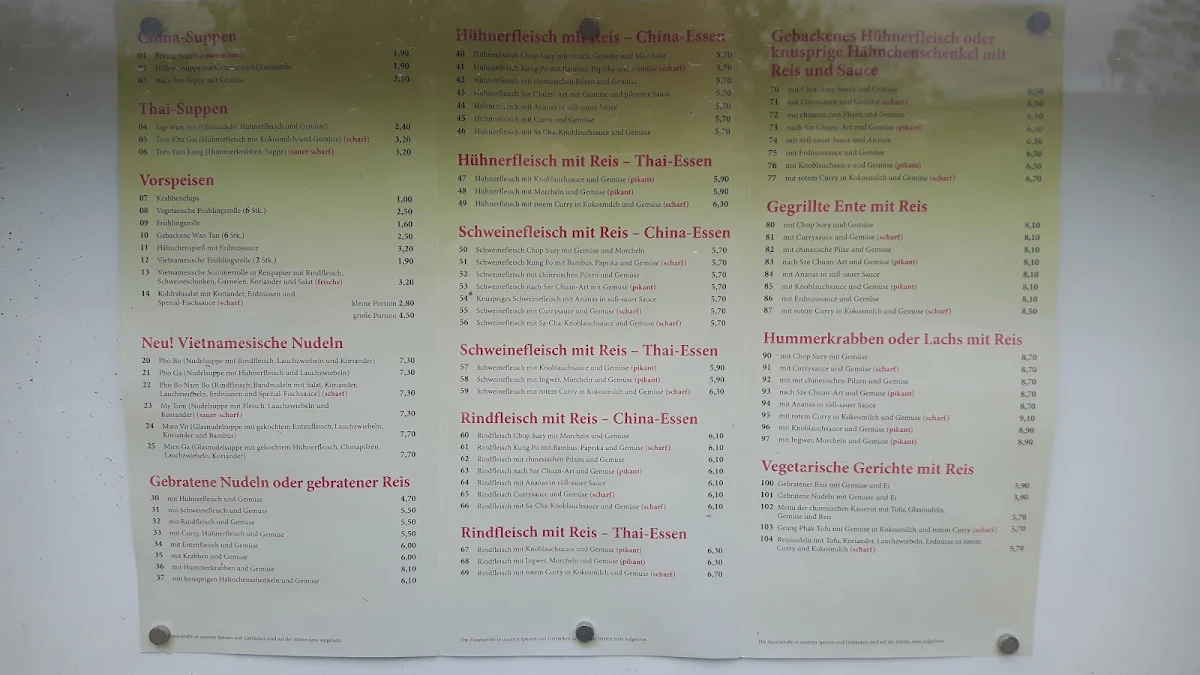 China-Suppen
01 Peking-Suppe (sauer-scharf) 1,90
02 Hühner-Suppe mit Gemüse und Glasnudeln 1,90
03 Wan-Tan-Suppe mit Gemüse 2,50
Thai-Suppen
04 Sup Wun Sen (Glasnudeln, Hühnerfleisch und Gemüse) 2,40
05 Tom Kha Gai (Hühnerfleisch mit Kokosmilch und Gemüse) (scharf) 3,20
06 Tom Yam Kung (Hummerkrabben-Suppe) (sauer-scharf) 3,20
Vorspeisen
07 Krabbenchips 1,00
08 Vegetarische Frühlingsrolle (6 Stk.) 2,50
09 Frühlingsrolle 1,60
10 Gebackene Wan Tan (6 Stk.) 2,50
11 Hähnchenspieß mit Erdnusssauce 3,20
12 Vietnamesische Frühlingsrolle (2 Stk.) 1,90
13 Vietnamesische Sommerrolle in Reispapier mit Rindfleisch,
Schweineschinken, Garnelen, Koriander und Salat (frische) 3,20
14 Kohlrabisalat mit Koriander, Erdnüssen und
Spezial-Fischsauce (scharf) kleine Portion 2,80
große Portion 4,50
Neu! Vietnamesische Nudeln
20 Pho Bo (Nudelsuppe mit Rindfleisch, Lauchzwiebeln und Koriander) 7,30
21 Pho Ga (Nudelsuppe mit Hühnerfleisch und Lauchzwiebeln) 7,30
22 Pho Bo Nam Bo (Rindfleisch, Bandnudeln mit Salat, Koriander,
Lauchzwiebeln, Erdnüssen und Spezial-Fischsauce) (scharf) 7,30
23 My Tom (Nudelsuppe mit Fleisch, Lauchzwiebeln und
Koriander) (sauer-scharf) 7,30
24 Mien Vit (Glasnudelsuppe mit gekochtem Entenfleisch, Lauchzwiebeln,
Koriander und Bambus) 7,70
25 Mien Ga (Glasnudelsuppe mit gekochtem Hühnerfleisch, Chinapilzen,
Lauchzwiebeln, Koriander) 7,70
Gebratene Nudeln oder gebratener Reis
30 mit Hühnerfleisch und Gemüse 4,70
31 mit Schweinefleisch und Gemüse 5,50
32 mit Rindfleisch und Gemüse 5,50
33 mit Curry, Hühnerfleisch und Gemüse 5,50
34 mit Entenfleisch und Gemüse 6,00
35 mit Krabben und Gemüse 6,00
36 mit Hummerkrabben und Gemüse 8,10
37 mit knusprigen Hähnchenschenkeln und Gemüse 6,10
Die Zusatzstoffe in unseren Speisen und Getränken sind auf der letzten Seite aufgelistet.
Hühnerfleisch mit Reis – China-Essen
40 Hühnerfleisch Chop Suey mit Gemüse und Morcheln 5,70
41 Hühnerfleisch Kung Po mit Bambus, Paprika und Gemüse (scharf) 5,70
42 Hühnerfleisch mit chinesischen Pilzen und Gemüse 5,70
43 Hühnerfleisch nach Sze Chuan-Art mit Gemüse und pikanter Sauce 5,70
44 Hühnerfleisch mit Ananas in süß-sauer Sauce 5,70
45 Hühnerfleisch mit Curry und Gemüse 5,70
46 Hühnerfleisch mit Sa Cha-Knoblauchsauce und Gemüse 5,70
Hühnerfleisch mit Reis – Thai-Essen
47 Hühnerfleisch mit Knoblauchsauce und Gemüse (pikant) 5,90
48 Hühnerfleisch mit Morcheln und Gemüse (pikant) 5,90
49 Hühnerfleisch mit rotem Curry in Kokosmilch und Gemüse (scharf) 6,30
Schweinefleisch mit Reis – China-Essen
50 Schweinefleisch Chop Suey mit Gemüse und Morcheln 5,70
51 Schweinefleisch Kung Po mit Bambus, Paprika und Gemüse (scharf) 5,70
52 Schweinefleisch mit chinesischen Pilzen und Gemüse 5,70
53 Schweinefleisch nach Sze Chuan-Art mit Gemüse (pikant) 5,70
54 Knuspriges Schweinefleisch mit Ananas in süß-sauer Sauce 5,70
55 Schweinefleisch mit Currysauce und Gemüse (scharf) 5,70
56 Schweinefleisch mit Sa-Cha-Knoblauchsauce und Gemüse (scharf) 5,70
Schweinefleisch mit Reis – Thai-Essen
57 Schweinefleisch mit Knoblauchsauce und Gemüse (pikant) 5,90
58 Schweinefleisch mit Ingwer, Morcheln und Gemüse (pikant) 5,90
59 Schweinefleisch mit rotem Curry in Kokosmilch und Gemüse (scharf) 6,30
Rindfleisch mit Reis – China-Essen
60 Rindfleisch Chop Suey mit Morcheln und Gemüse 6,10
61 Rindfleisch Kung Po mit Bambus, Paprika und Gemüse (scharf) 6,10
62 Rindfleisch mit chinesischen Pilzen und Gemüse 6,10
63 Rindfleisch nach Sze Chuan-Art und Gemüse (pikant) 6,10
64 Rindfleisch mit Ananas in süß-sauer Sauce 6,10
65 Rindfleisch Currysauce und Gemüse (scharf) 6,10
66 Rindfleisch mit Sa-Cha-Knoblauchsauce und Gemüse (scharf) 6,10
Rindfleisch mit Reis – Thai-Essen
67 Rindfleisch mit Knoblauchsauce und Gemüse (pikant) 6,30
68 Rindfleisch mit Ingwer, Morcheln und Gemüse (pikant) 6,30
69 Rindfleisch mit rotem Curry in Kokosmilch und Gemüse (scharf) 6,70
Die Zusatzstoffe in unseren Speisen und Getränken sind auf der letzten Seite aufgelistet.
Gebackenes Hühnerfleisch oder
knusprige Hähnchenschenkel mit
Reis und Sauce
70 mit Chop Suey Sauce und Gemüse 6,50
71 mit Currysauce und Gemüse (scharf) 6,50
72 mit chinesischen Pilzen und Gemüse 6,50
73 nach Sze Chuan-Art und Gemüse (pikant) 6,50
74 mit süß-sauer Sauce und Ananas 6,50
75 mit Erdnusssauce und Gemüse 6,50
76 mit Knoblauchsauce und Gemüse (pikant) 6,50
77 mit rotem Curry in Kokosmilch und Gemüse (scharf) 6,70
Gegrillte Ente mit Reis
80 mit Chop Suey und Gemüse 8,10
81 mit Currysauce und Gemüse (scharf) 8,10
82 mit chinesische Pilze und Gemüse 8,10
83 nach Sze Chuan-Art und Gemüse (pikant) 8,10
84 mit Ananas in süß-sauer Sauce 8,10
85 mit Knoblauchsauce und Gemüse (pikant) 8,10
86 mit Erdnusssauce und Gemüse 8,10
87 mit rotem Curry in Kokosmilch und Gemüse (scharf) 8,50
Hummerkrabben oder Lachs mit Reis
90 mit Chop Suey mit Gemüse 8,70
91 mit Currysauce und Gemüse (scharf) 8,70
92 mit mit chinesischen Pilzen und Gemüse 8,70
93 nach Sze-Chuan-Art und Gemüse (pikant) 8,70
94 mit Ananas in süß-sauer Sauce 8,70
95 mit rotem Curry in Kokosmilch und Gemüse (scharf) 9,10
96 mit Knoblauchsauce und Gemüse (pikant) 8,90
97 mit Ingwer, Morcheln und Gemüse (pikant) 8,90
Vegetarische Gerichte mit Reis
100 Gebratener Reis mit Gemüse und Ei 3,90
101 Gebratene Nudeln mit Gemüse und Ei 3,90
102 Menü der chinesischen Kaiserin mit Tofu, Glasnudeln,
Gemüse und Reis 5,70
103 Geang Phalt Tofu mit Gemüse in Kokosmilch und rotem Curry (scharf) 5,70
104 Reisnudeln mit Tofu, Koriander, Lauchzwiebeln, Erdnüsse in rotem
Curry und Kokosmilch (scharf) 5,70
Die Zusatzstoffe in unseren Speisen und Getränken sind auf der letzten Seite aufgelistet.